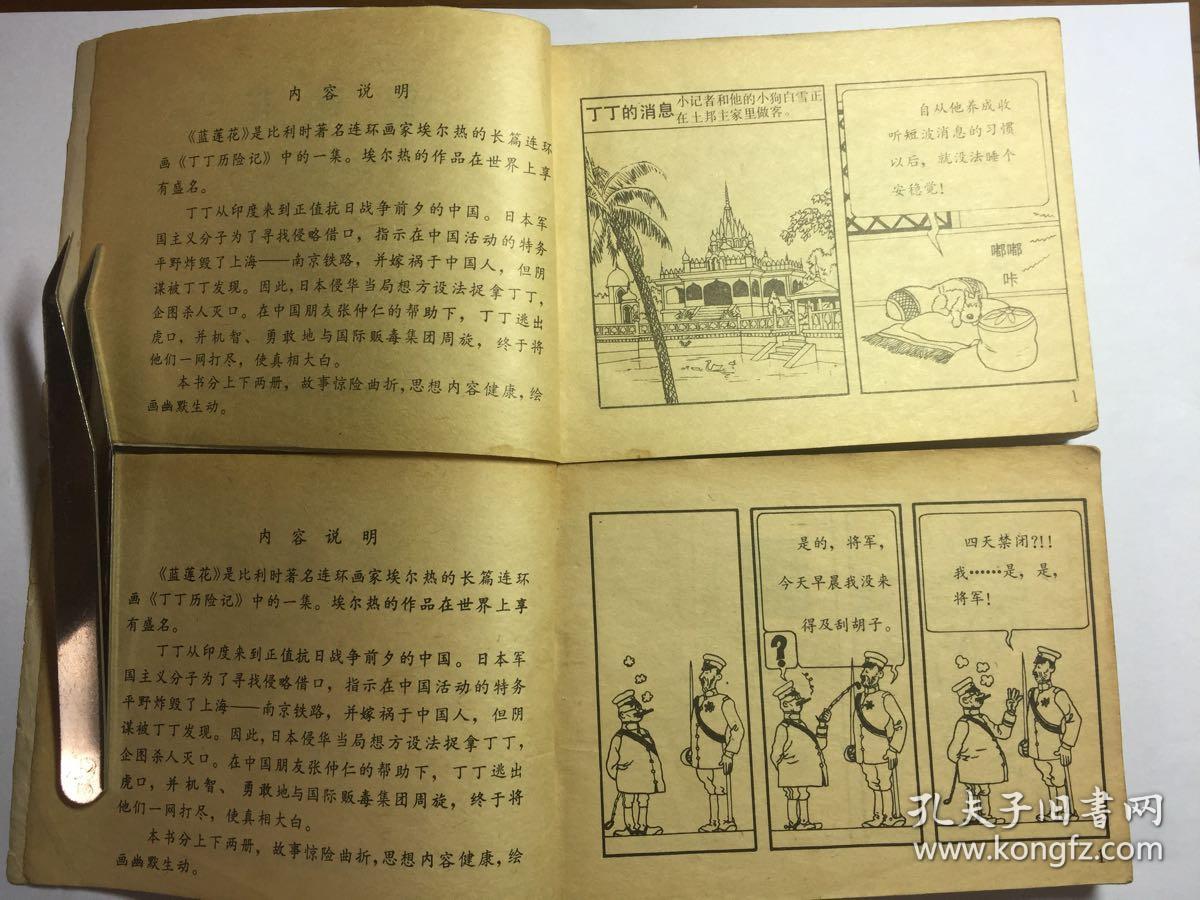 内容说明
《蓝莲花》是比利时著名连环画家埃尔热的长篇连环
画《丁丁历险记》中的一集。埃尔热的作品在世界上享
有盛名。
丁丁从印度来到正值抗日战争前夕的中国。日本军
国主义分子为了寻找侵略借口，指示在中国活动的特务
平野炸毁了上海——南京铁路，并嫁祸于中国人，但阴
谋被丁丁发现。因此，日本侵华当局想方设法捉拿丁丁，
企图杀人灭口。在中国朋友张仲仁的帮助下，丁丁逃出
虎口，并机智、勇敢地与国际贩毒集团周旋，终于将
他们一网打尽，使真相大白。
本书分上下两册，故事惊险曲折，思想内容健康，绘
画幽默生动。
丁丁的消息
小记者和他的小狗白雪正
在土邦主家里做客。
自从他养成收
听短波消息的习惯
以后，就没法睡个
安稳觉！
嘟嘟
咔
1
内容说明
《蓝莲花》是比利时著名连环画家埃尔热的长篇连环
画《丁丁历险记》中的一集。埃尔热的作品在世界上享
有盛名。
丁丁从印度来到正值抗日战争前夕的中国。日本军
国主义分子为了寻找侵略借口，指示在中国活动的特务
平野炸毁了上海——南京铁路，并嫁祸于中国人，但阴
谋被丁丁发现。因此，日本侵华当局想方设法捉拿丁丁，
企图杀人灭口。在中国朋友张仲仁的帮助下，丁丁逃出
虎口，并机智、勇敢地与国际贩毒集团周旋，终于将
他们一网打尽，使真相大白。
本书分上下两册，故事惊险曲折，思想内容健康，绘
画幽默生动。
是的，将军，
今天早晨我没来
得及刮胡子。
?
四天禁闭?!!
我……是，是，
将军！
1
孔夫子旧书网
www.kongfz.com